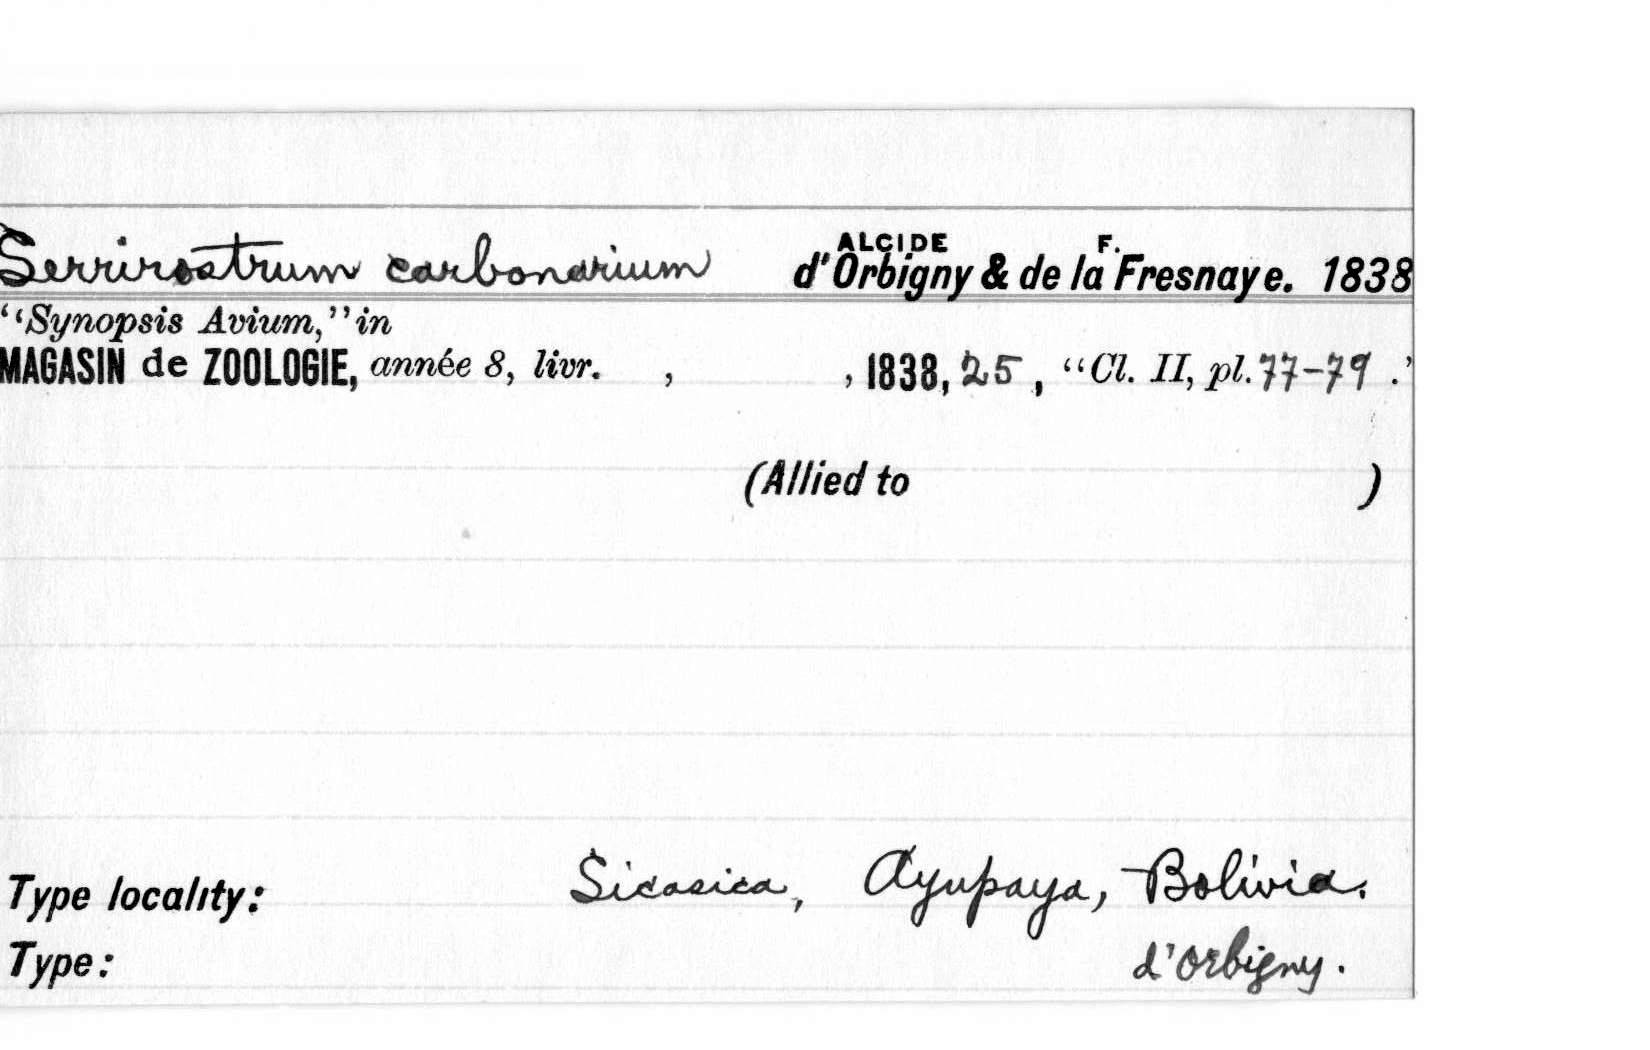 ALCIDE F.
Serrirostrum carbonarium d'Orbigny & de la Fresnaye. 1838
"Synopsis Avium," in
MAGASIN de ZOOLOGIE, année 8, livr. , , 1838, 25, "Cl. II, pl. 77-79 .'
(Allied to )
Type locality: Sicasica, Ayupaya, Bolivia.
Type: d'Orbigny.